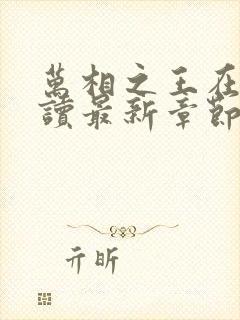 萬相之王在
讀最新章節
亓昕